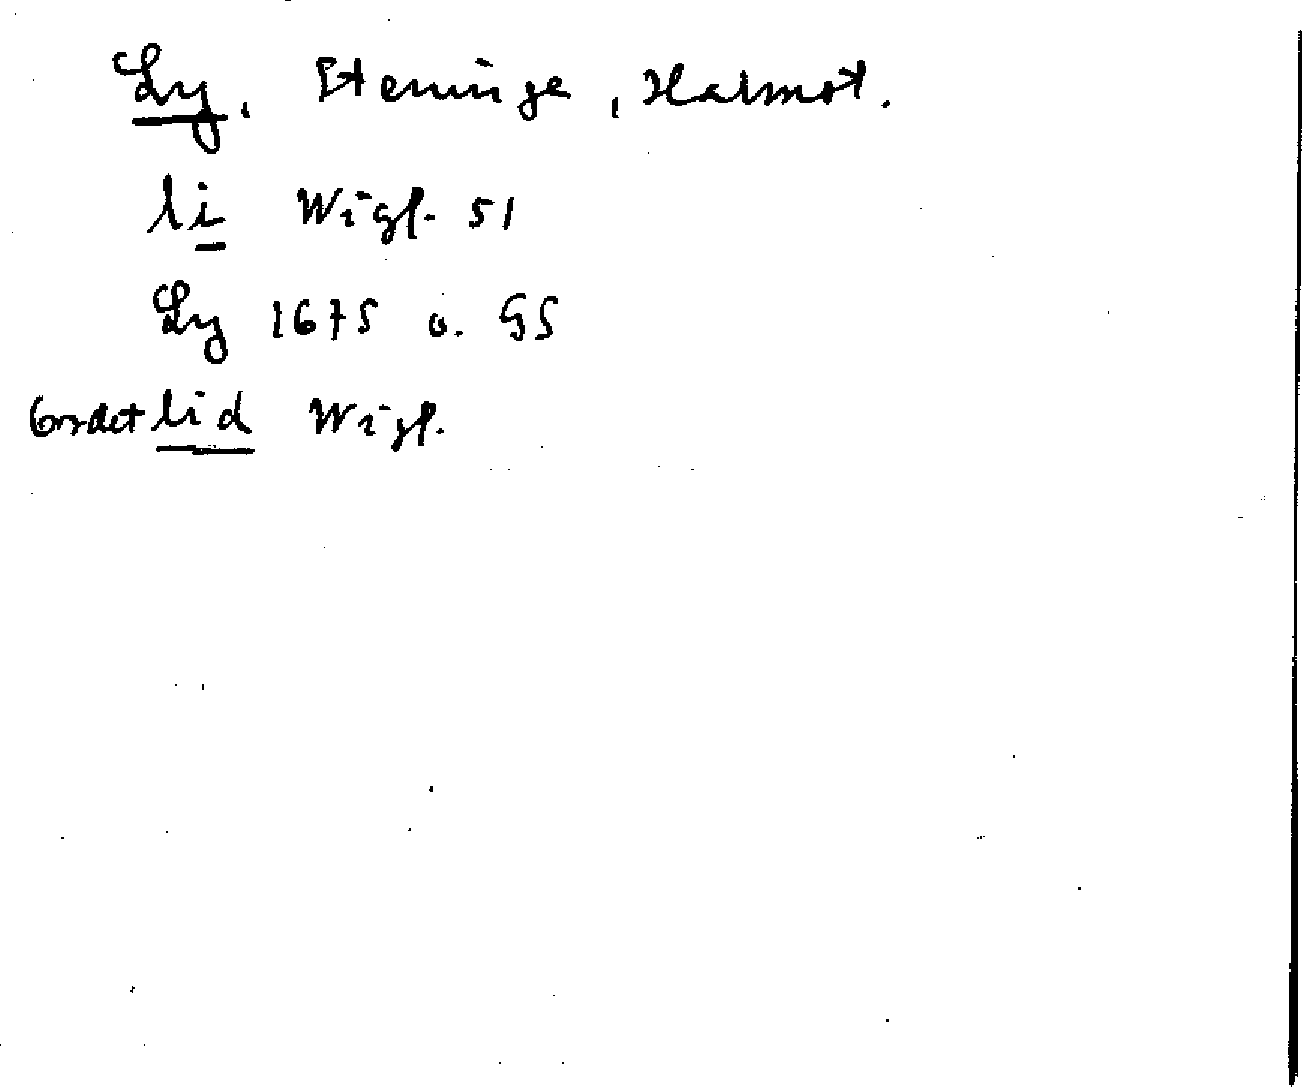 Ly, Steninge, Halmst.
li Wigf. 51
Ly 1675 o. GS
Ordet lid Wigf.